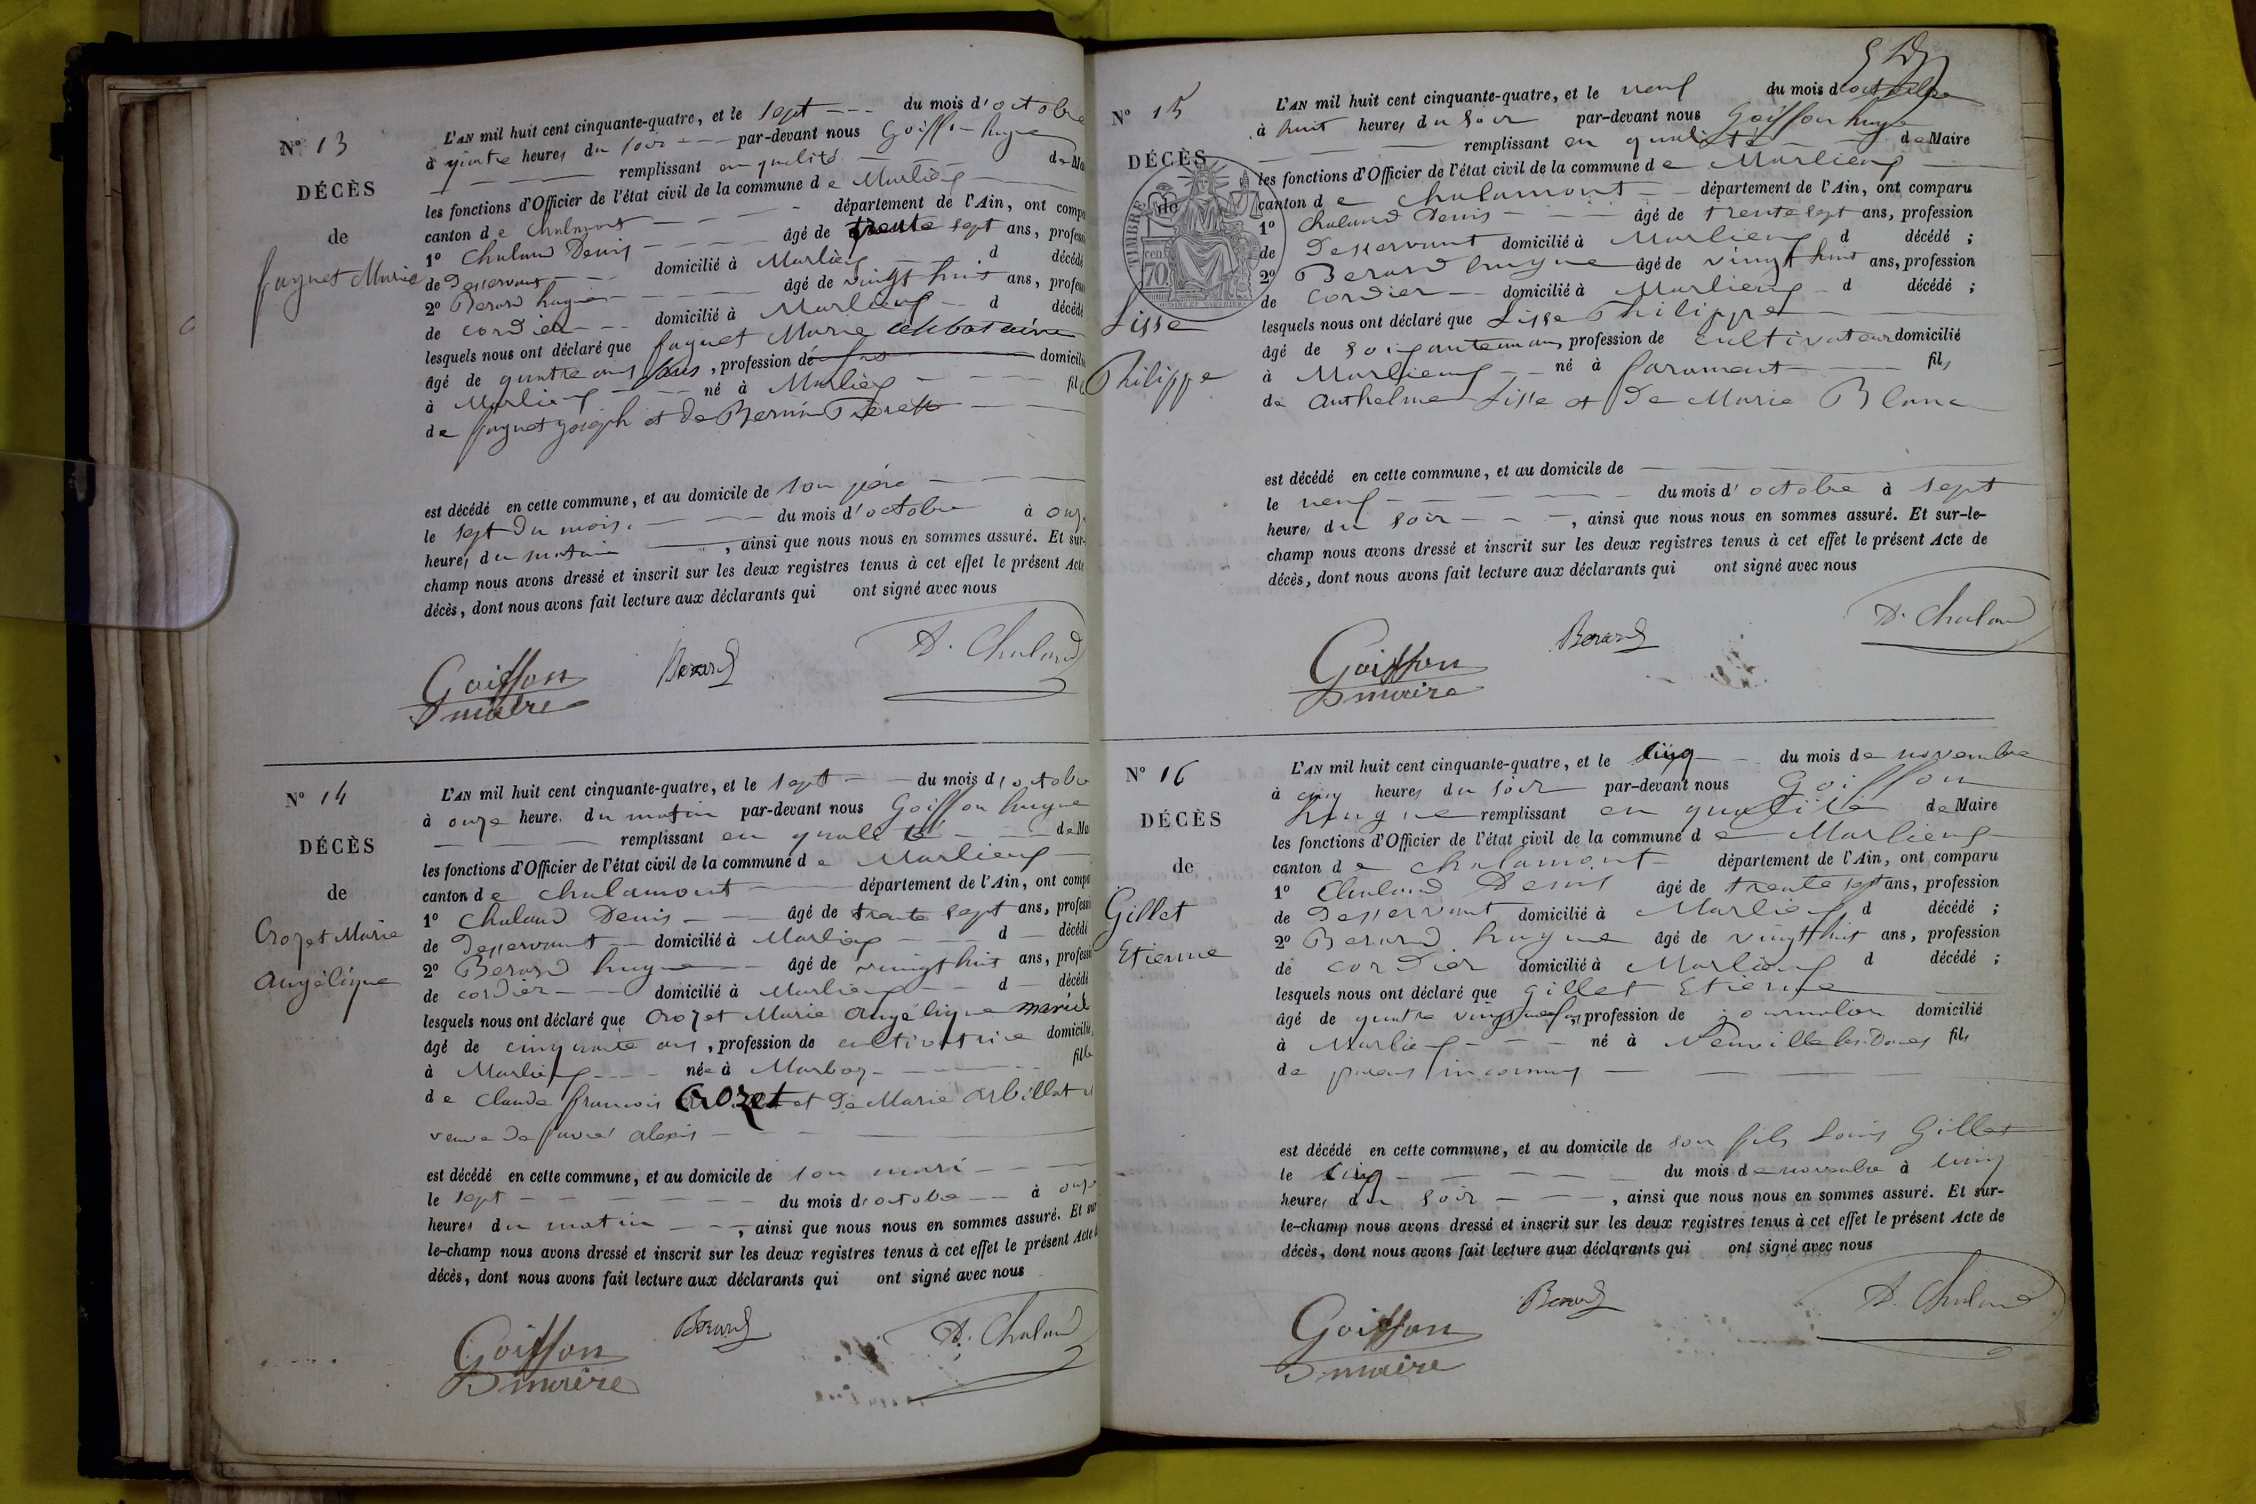 N° 13
DÉCÈS
de
faynet Marie
L'AN mil huit cent cinquante-quatre, et le sept du mois d'octobre
à quatre heures du soir par-devant nous Goiffon hugne
remplissant en qualité de Ma
les fonctions d'Officier de l'état civil de la commune de Marlieux
canton de Chalamont département de l'Ain, ont compa
1° Chaland Denis âgé de trente sept ans, profess
de Desservant domicilié à Marlieux d décédé
2° Berard hugues âgé de vingt huit ans, profess
de cordier domicilié à Marlieux d décédé
lesquels nous ont déclaré que faynet Marie célibataire
âgé de quatre ans, profession de domicilié
à Marlieux né à Marlieux fille
de faynet joseph et de Bernin
est décédé en cette commune, et au domicile de son père
le sept du mois du mois d'octobre à onze
heures du matin, ainsi que nous nous en sommes assuré. Et sur-
champ nous avons dressé et inscrit sur les deux registres tenus à cet effet le présent Acte
décès, dont nous avons fait lecture aux déclarants qui ont signé avec nous
Goiffon Berard D. Chaland
maire
N° 14
DÉCÈS
de
Crozet Marie
Angélique
L'AN mil huit cent cinquante-quatre, et le sept du mois d'octobre
à onze heure du matin par-devant nous Goiffon hugne
remplissant en qualité de Ma
les fonctions d'Officier de l'état civil de la commune de Marlieux
canton de Chalamont département de l'Ain, ont compa
1° Chaland Denis âgé de trente sept ans, profess
de Desservant domicilié à Marlieux d décédé
2° Berard hugne âgé de vingt huit ans, profess
de cordier domicilié à Marlieux d décédé
lesquels nous ont déclaré que Crozet Marie Angélique mariée
âgé de cinquante ans, profession de cultivatrice domicilié
à Marlieux née à Marboz fille
de Claude françois Crozet et de Marie Arbillat et
veuve de favre alexis
est décédé en cette commune, et au domicile de son mari
le sept du mois d'octobre à onze
heures du matin, ainsi que nous nous en sommes assuré. Et sur
le-champ nous avons dressé et inscrit sur les deux registres tenus à cet effet le présent Acte d
décès, dont nous avons fait lecture aux déclarants qui ont signé avec nous
Goiffon Berard D. Chaland
maire
N° 15
DÉCÈS
de
TIMBRE
70
Lisse
Philippe
L'AN mil huit cent cinquante-quatre, et le neuf du mois d'octobre
à huit heures du soir par-devant nous Goiffon hugne
remplissant en qualité de Maire
les fonctions d'Officier de l'état civil de la commune de Marlieux
canton de Chalamont département de l'Ain, ont comparu
1° Chaland Denis âgé de trente sept ans, profession
de Desservant domicilié à Marlieux d décédé ;
2° Berard hugne âgé de vingt huit ans, profession
de cordier domicilié à Marlieux d décédé ;
lesquels nous ont déclaré que Lisse Philippe
âgé de soixante un ans profession de cultivateur domicilié
à Marlieux né à faramant fils
de Anthelme Lisse et de Marie Blanc
est décédé en cette commune, et au domicile de
le neuf du mois d'octobre à sept
heures du soir, ainsi que nous nous en sommes assuré. Et sur-le-
champ nous avons dressé et inscrit sur les deux registres tenus à cet effet le présent Acte de
décès, dont nous avons fait lecture aux déclarants qui ont signé avec nous
Goiffon Berard D. Chaland
maire
N° 16
DÉCÈS
de
Gillet
Etienne
L'AN mil huit cent cinquante-quatre, et le cinq du mois de novembre
à cinq heures du soir par-devant nous Goiffon
hugne remplissant en qualité de Maire
les fonctions d'Officier de l'état civil de la commune de Marlieux
canton de Chalamont département de l'Ain, ont comparu
1° Chaland Denis âgé de trente sept ans, profession
de Desservant domicilié à Marlieux d décédé ;
2° Berard hugne âgé de vingt huit ans, profession
de cordier domicilié à Marlieux d décédé ;
lesquels nous ont déclaré que Gillet Etienne
âgé de quatre vingt profession de journalier domicilié
à Marlieux né à Neuville les Dames fils
de parens inconnus
est décédé en cette commune, et au domicile de son fils Louis Gillet
le cinq du mois de novembre à cinq
heures du soir, ainsi que nous nous en sommes assuré. Et sur-
le-champ nous avons dressé et inscrit sur les deux registres tenus à cet effet le présent Acte de
décès, dont nous avons fait lecture aux déclarants qui ont signé avec nous
Goiffon Berard D. Chaland
maire